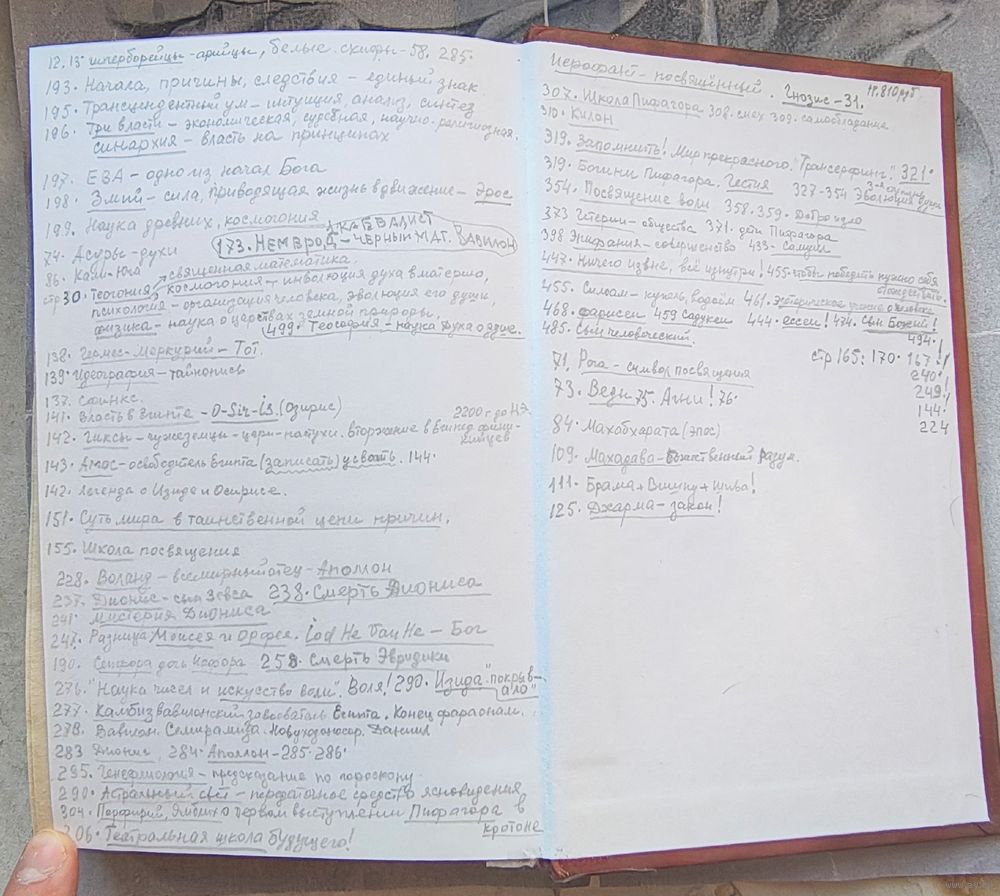 12. 13 гиперборейцы-арийцы, белые скифы - 58. 285.
193. Начала, причины, следствия - единый знак.
195. Трансцендентный ум - интуиция, анализ, синтез
196. Три власти - экономическая, судебная, научно-религиозная.
синархия - власть на принципах
197. ЕВА - одно из начал Бога
198. Змий - сила, приводящая жизнь в движение - Эрос
199. Наука древних, космогония
КАББАЛИСТ
74. Асуры - духи
173. НЕМВРОД - ЧЕРНЫЙ МАГ. ВАВИЛОН
86. Кали-Юга
священная математика.
стр 30. Теогония, космогония - инволюция духа в материю,
психология - организация человека, эволюция его души,
физика - наука о царствах земной природы,
499. Теософия - наука духа о духе.
138. Гермес-Меркурий - Тот.
139. Идеография - тайнопись
137. Сфинкс.
141. Власть в Египте - O-Sir-is. (Озирис)
2200 г до НЭ
142. Гиксы - чужеземцы - цари-пастухи. Вторжение в Египед фини-
кийцев
143. Амос - освободитель Египта (записать) усвоить. 144.
142. Легенда о Изиде и Осирисе.
151. Суть мира в таинственной цепи причин.
155. Школа посвящения
228. Воланд - всемирный отец - Аполлон
237. Дионис - сын Зевса 238. Смерть Диониса
241. Мистерия Диониса
247. Разница Моисея и Орфея. iod He Vau He - Бог
190. Сепфора дочь Иофора 258. Смерть Эвридики
276. "Наука чисел и искусство воли". Воля! 290. Изида "покрыв-
ало"
277. Камбиз вавилонский завоеватель Египта. Конец фараонам.
278. Вавилон. Семирамида. Новуходоносор. Даниил
283 Дионис, 284. Аполлон - 285. 286.
295. Генефлиология - предсказание по гороскопу.
290. Астральный свет - передаточное средство ясновидения
304. Порфирий, Ямвлих о первом выступлении Пифагора в
Кротоне
306. Театральная школа будущего!
Иерофант - посвящённый. Гнозис - 31. 810 руб
307. Школа Пифагора 308. смех 309. самообладание
310. Килон
319. Запомнить! Мир прекрасного. "Трансерфинг". 321.
319. Богини Пифагора. Гестия 327-354 Эволюция души
354. Посвящение воли. 358. 359. Добро и зло
373 Гетерии - общества 371. дети Пифагора
398 Эпифания - совершенство 433. Самуил
447. Ничего извне, всё изнутри! 455. чтобы победить нужно себя
455. Силоам - купель, водоём 461. Эзотерическое учение о человеке
468. фарисеи 459 Садукеи 444. ессеи! 474. Сын Божий!
485. Сын человеческий. 494.!
стр 165: 170. 167.!
71. Рога - символ посвящения 240.!
73. Веды 75. Агни! 76. 249!
144.
84. Махобхарата (эпос) 224
109. Махадава - божественный разум.
111. Брама + Вишну + Шива!
125. Джарма - закон!